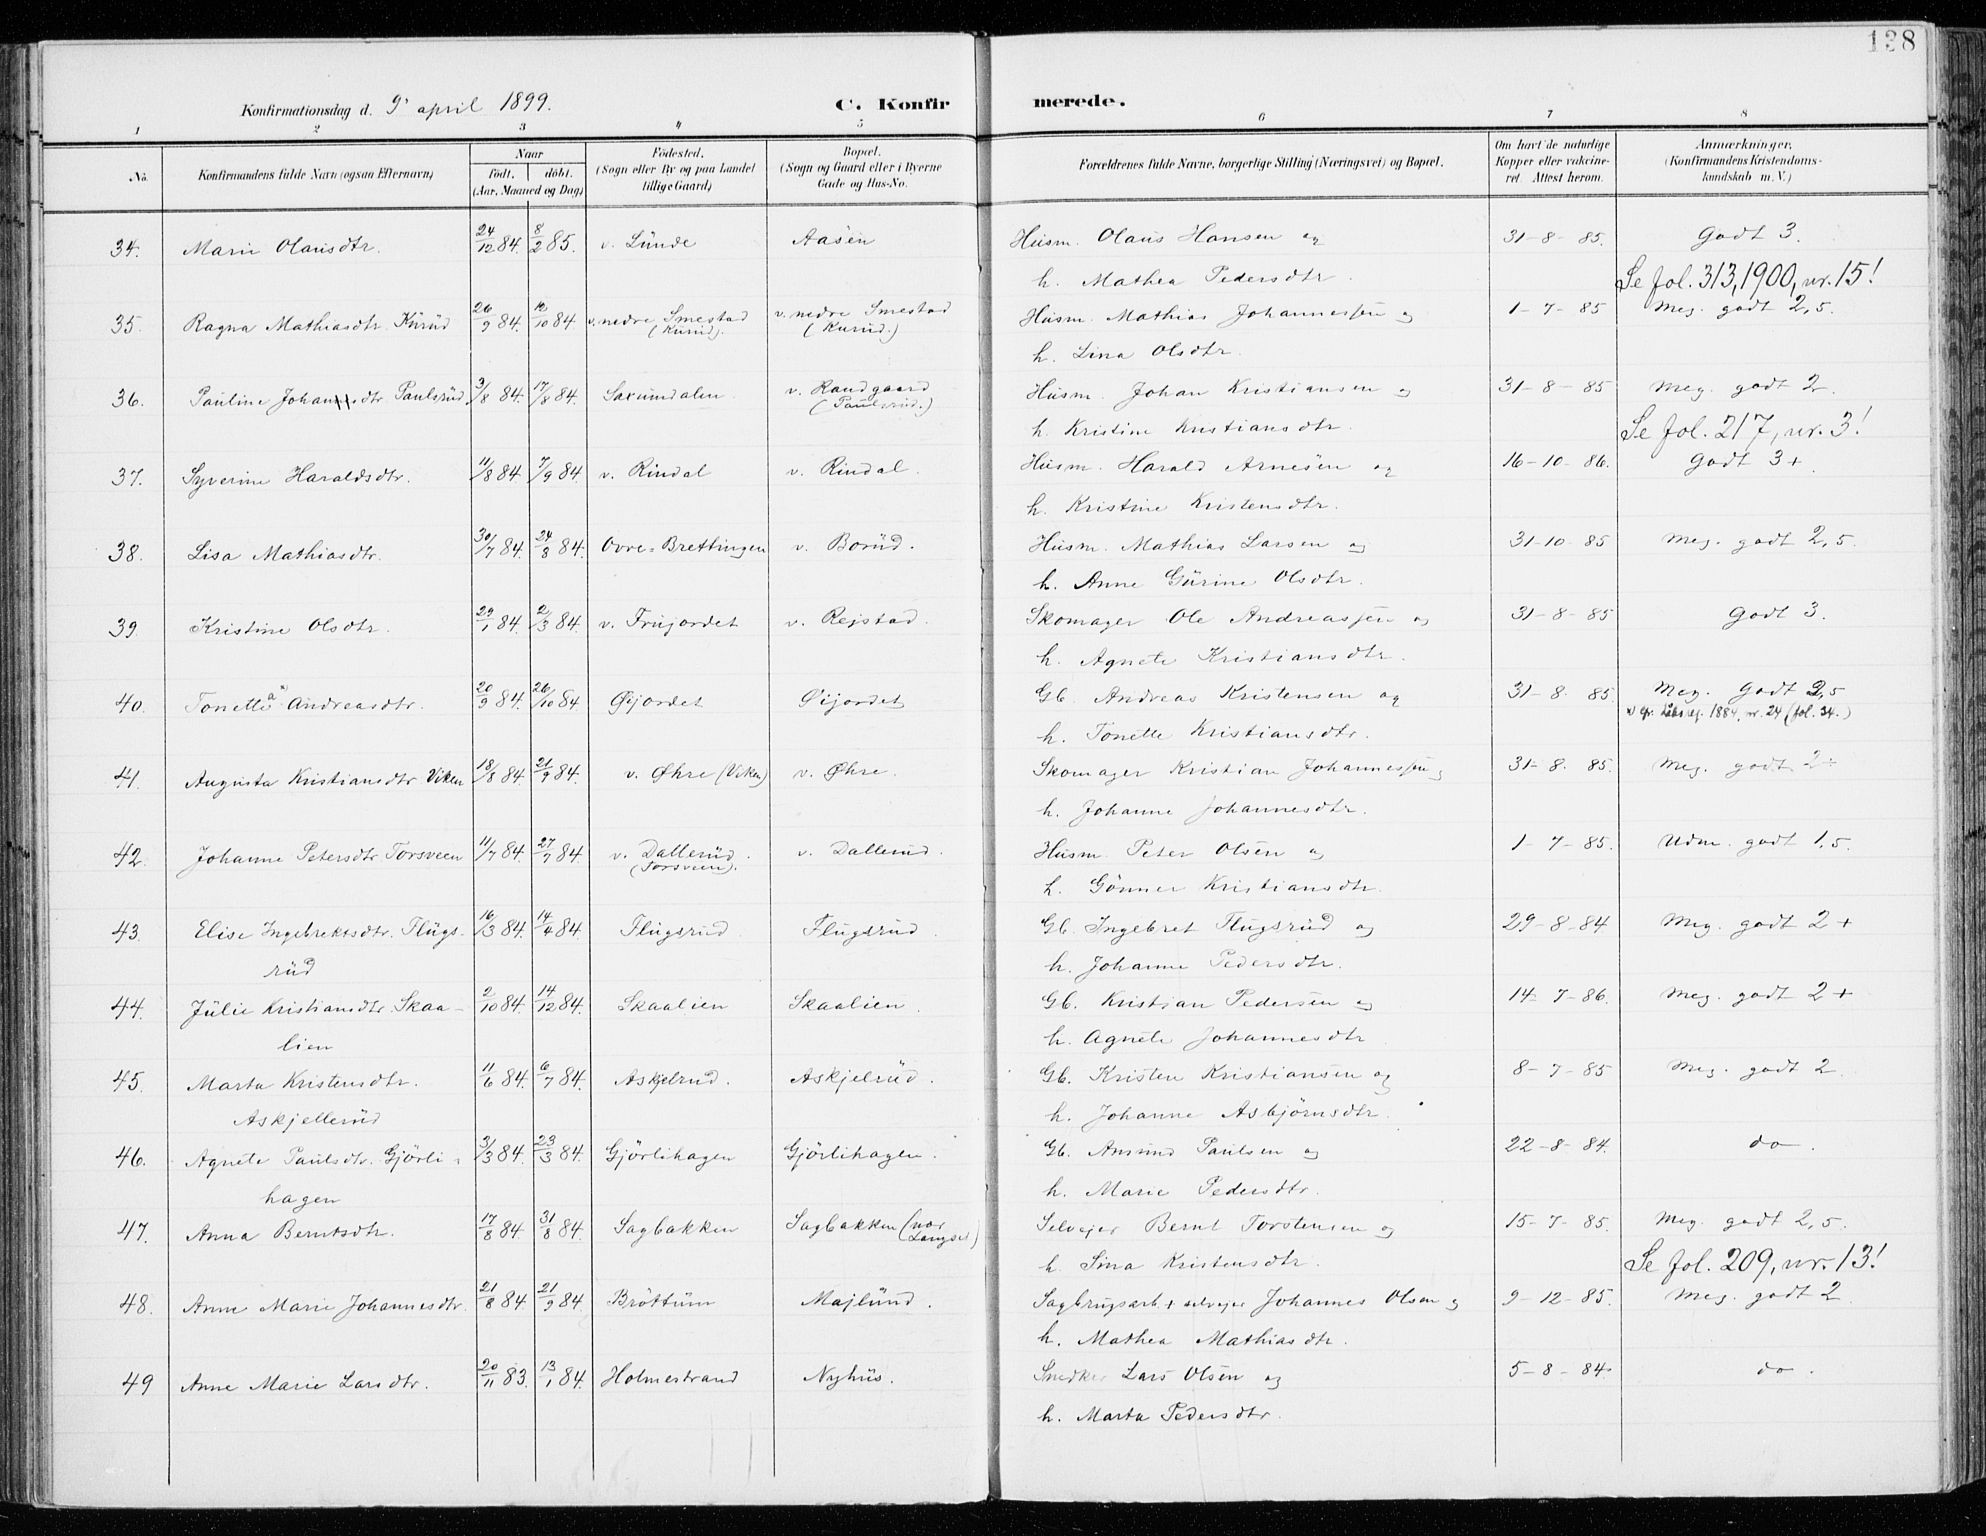 138
Konfirmationsdag d. 9' april 1899. C. Konfirmerede.
1 2 3 4 5 6 7 8
No. Konfirmandens fulde Navn (ogsaa Efternavn) Naar født. døbt. (Aar, Maaned og Dag) Fødested. (Sogn eller By og paa Landet tillige Gaard) Bopæl. (Sogn og Gaard eller i Byerne Gade og Hus-No. Forældrenes fulde Navne, borgerlige Stilling (Næringsvei) og Bopæl. Om havt de naturlige Kopper eller vakcineret. Attest herom. Anmærkninger, (Konfirmandens Kristendomskundskab m. V.)
34. Marie Olausdtr. 24/12 84. 8/2 85. v. Lunde Aasen Husm. Olaus Hansen og 31-8-85. Godt 3.
h. Mathea Pedersdtr. Se fol. 313, 1900, nr. 15!
35. Ragna Mathiasdtr. Kurud 26/9 84. 12/10 84 v. nedre Smestad (Kurud). v. nedre Smestad (Kurud.) Husm. Mathias Johannessen og 1-7-85 Meg. godt 2,5.
h. Lina Olsdtr.
36. Pauline Johansdtr Paulsrud 3/8 84. 17/8 84. Saxumdalen v. Raadgaard (Paulsrud.) Husm. Johan Kristiansen og 31-8-85 Meg. godt 2
h. Kristine Kristiansdtr. Se fol. 217, nr. 3!
37. Syverine Haraldsdtr. 11/8 84. 7/9 84. v. Rindal v. Rindal. Husm. Harald Arnesen og 16-10-86. Godt 3+
h. Kristine Kristensdtr.
38. Lisa Mathiasdtr. 30/7 84. 24/8 84. Ovre-Brettingen v. Borud. Husm. Mathias Larsen og 31-10-85 Meg. godt 2,5.
h. Anne Gurine Olsdtr.
39. Kristine Olsdtr. 29/1 84. 2/3 84. v. Frujordet v. Rejstad. Skomager Ole Andreassen og 31-8-85 Godt 3.
h. Agnete Kristiansdtr.
40. Tonette Andreasdtr. 20/9 84. 26/10 84 Øijordet Øijordet Gb. Andreas Kristensen og 31-8-85. Meg. Godt 2,5
h. Tonette Kristiansdtr. 1884, nr. 24 (fol. 34.)
41. Augusta Kristiansdtr Viken 18/8 84. 21/9 84. v. Øhre (Viken) v. Øhre. Skomager Kristian Johannessen og 31-8-85. Meg. godt 2÷
h. Johanne Johannesdtr.
42. Johanne Petersdtr. Torsveen 11/7 84. 27/7 84. v. Dallerud. (Torsveen). v. Dallerud. Husm. Peter Olsen og 1-7-85. Udm. godt 1,5.
h. Gønner Kristiansdtr.
43. Elise Ingebrektsdtr. Flugs- 16/3 84. 14/4 84. Flugsrud Flugsrud Gb. Ingebret Flugsrud og 29-8-84 Meg. godt 2+
rud h. Johanne Pedersdtr.
44. Julie Kristiansdtr. Skaa- 2/10 84. 14/12 84. Skaalien Skaalien Gb. Kristian Pedersen og 14-7-86. Meg. godt 2+
lien h. Agnete Johannesdtr
45. Marta Kristensdtr. 11/6 84. 6/7 84. Askjelrud. Askjelrud. Gb. Kristen Kristiansen og 8-7-85 Meg. godt 2
Askjellerud h. Johanne Asbjørnsdtr.
46. Agnete Paulsdtr. Gjørli- 3/3 84. 23/3 84. Gjørlihagen Gjørlihagen. Gb. Amund Paulsen og 22-8-84. do.
hagen h. Marie Pedersdtr.
47. Anna Berntsdtr. 17/8 84. 31/8 84. Sagbakken Sagbakken (nær Langset) Selvejer Bernt Torstensen og 15-7-85. Meg. godt 2,5.
h. Sina Kristensdtr. Se fol. 209, nr. 13!
48. Anne Marie Johannesdtr. 21/8 84. 21/9 84. Brøttum Majlund. Sagbrugsarb. + selvejer Johannes Olsen og 9-12-85. Meg. godt 2
h. Mathea Mathiasdtr.
49 Anne Marie Larsdtr. 20/11 83. 13/1 84. Holmestrand Nyhus. Snedker Lars Olsen og 5-8-84. do.
h. Marta Pedersdtr.